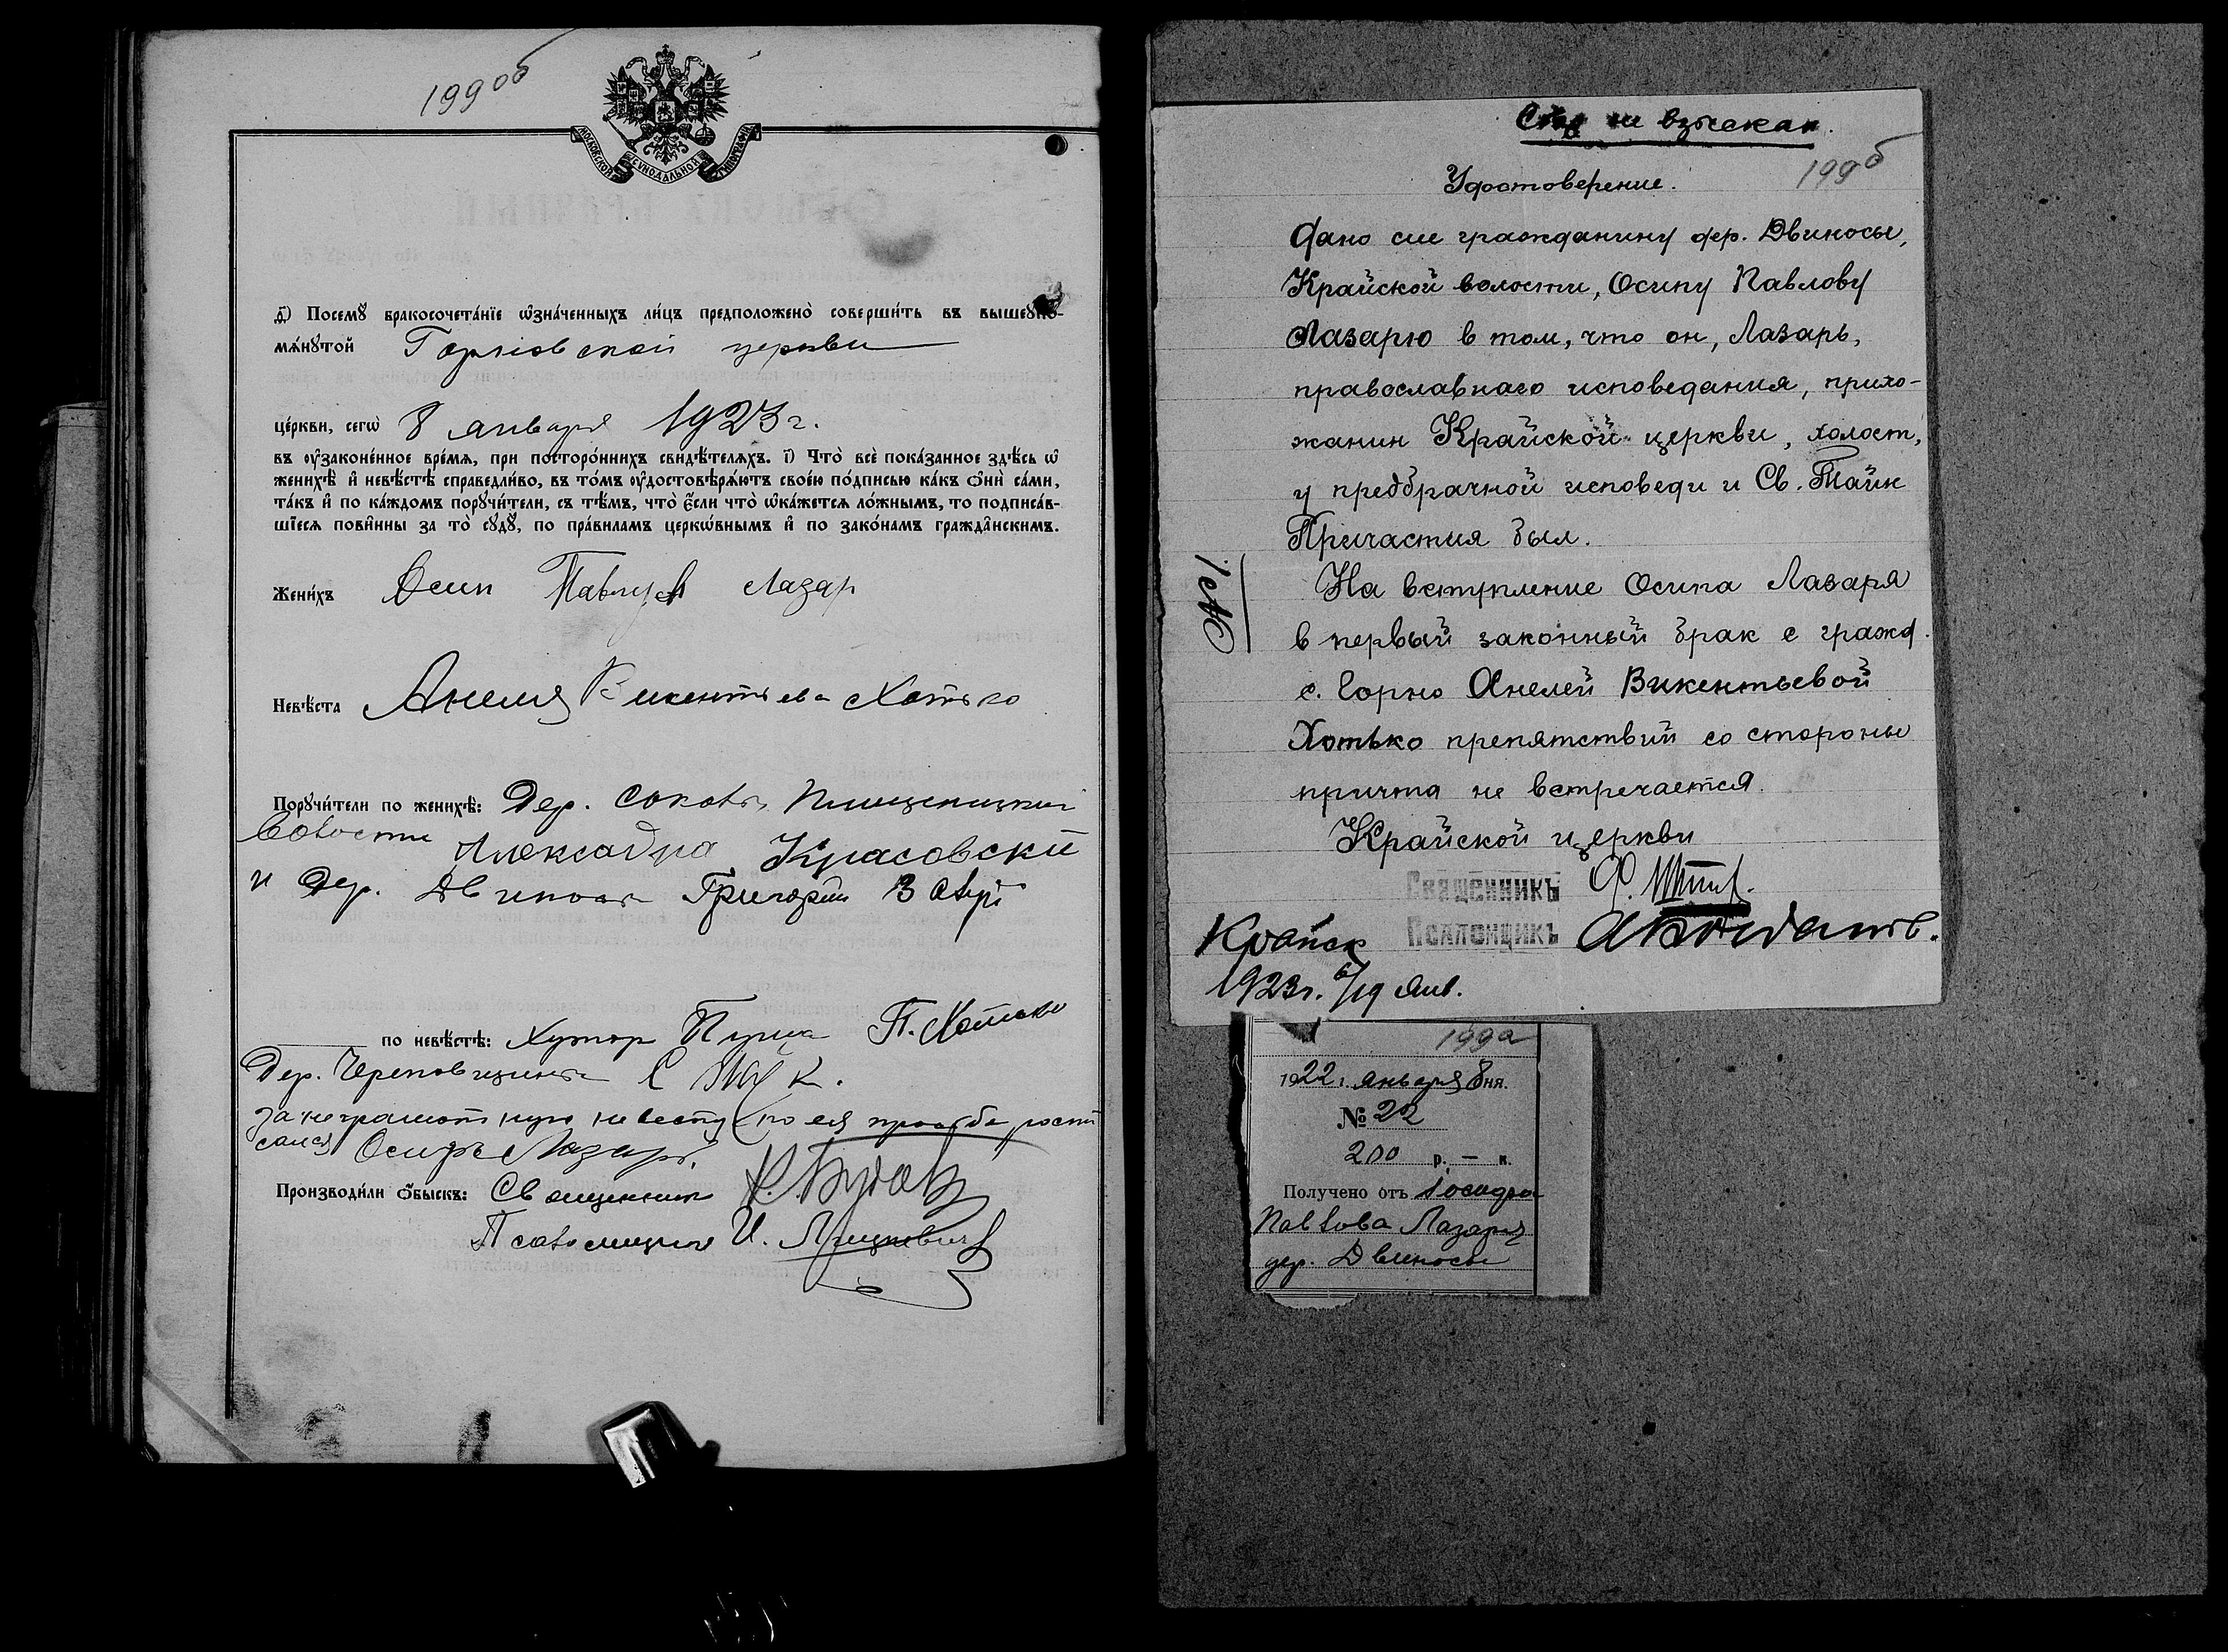 199об
МОСКОВСКОЙ СѴНОДАЛЬНОЙ ТИПОГРАФІИ
д҃) Посемꙋ̀ бракосочета́нїе ѡ҆зна́ченныхъ ли́цъ предположено̀ соверши́ть въ вышеꙋпо-
мѧ́нꙋтой церкви
це́ркви, сегѡ̀ 8 января 1923 г.
въ ᲂу҆зако́ненное вре́мѧ, при посторо́ннихъ свидѣ́телѧхъ. і҃) Что̀ всѐ пока́занное здѣ́сь ѡ҆
женихѣ̀ и҆ невѣ́стѣ справедли́во, въ то́мъ ᲂу҆достовѣрѧ́ютъ свое́ю по́дписью ка́къ ѻ҆нѝ са́ми,
та́къ и҆ по ка́ждомъ порꙋчи́тели, съ тѣ́мъ, что̀ є҆́сли что̀ ѡ҆ка́жетсѧ ло́жнымъ, то подписа́в-
шїесѧ пови́нны за то̀ сꙋдꙋ̀, по пра́виламъ церкѡ́внымъ и҆ по зако́намъ гражда̂нскимъ.
Жени́хъ Осип Павлов Лазар
Невѣ́ста Анеля Викентьева Хотько
Порꙋчи́тели по женихѣ̀: Дер.
волости Александра Красовский
и Дер. Двиноса Григорий
по невѣ́стѣ: Хутор П. Хотько
Дер.
за неграмотную невесту по ея просьбе распи
сался Осипъ Лазарь.
Производи́ли ѻ҆́быскъ: Священник
Псаломщик И.
не взыскан.
199б
Удостоверение.
Дано сие гражданину дер. Двиносы,
Крайской волости, Осипу Павлову
Лазарю в том, что он, Лазарь,
православнаго исповедания, прихо-
жанин Крайской церкви, холост,
у предбрачной исповеди и Св. Тайн
Причастия был.
На вступление Осипа Лазаря
в первый законный брак с гражд.
с. Горно Анелей Викентьевой
Хотько препятствий со стороны
причта не встречается.
Крайской церкви
Священникъ
Псаломщикъ
Крайск
1923 г. 6/19 Янв.
199а
1922 г. января 8 дня.
№ 22
200 р. — к.
Получено отъ
Павлова Лазаря
дер. Двиносы